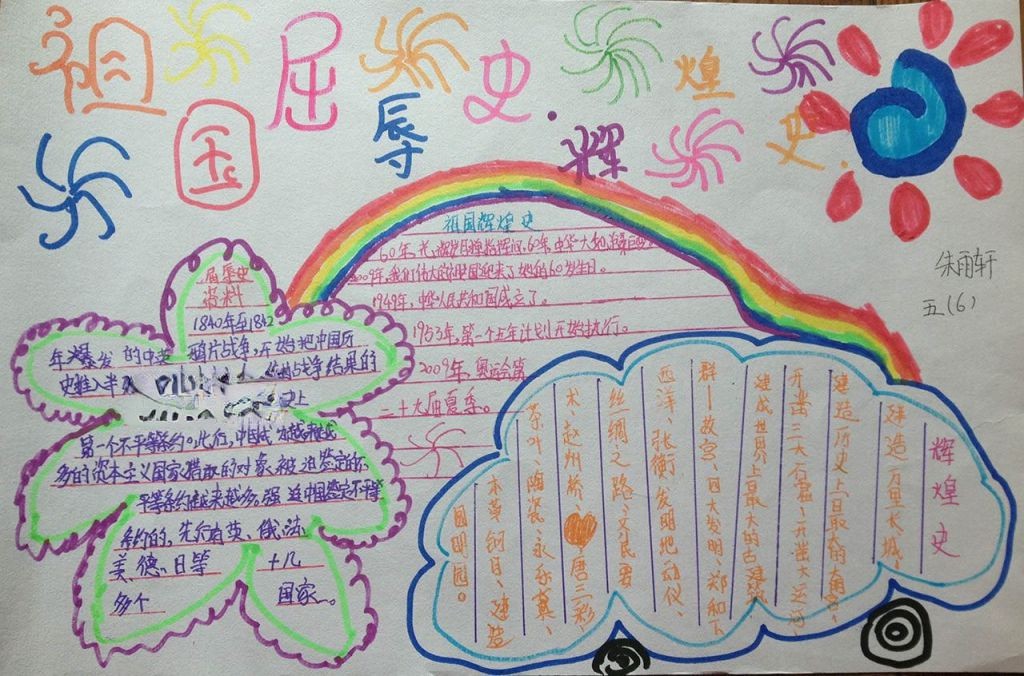 祖国屈辱史·辉煌史·
朱雨轩
五(6)
祖国辉煌史
60年
2009年,我们伟大的祖国迎来了她的60岁生日。
1949年,中华人民共和国成立了。
1953年,第一个五年计划开始执行。
2009年,奥运会第
二十九届夏季。
屈辱史
资料
1840年至1842
年爆发的中英鸦片战争,开始把中国历
史推入半
战争结果的
史上
第一个不平等条约。此后,中国成为越来越
多的资本主义国家猎取的对象,被迫签定的不
平等条约越来越多。强迫中国签定不平等
条约的,先后有英、俄、法、
美、德、日等十几
多个国家。
辉煌史
建造万里长城、
建造历史上最大的
开凿三大石窟、开凿大运河、
建成世界上最大的古建筑
群——故宫、四大发明、郑和下
西洋、张衡发明地动仪、
丝绸之路、文艺
术、赵州桥、唐三彩
茶叶、陶瓷、永乐
本草纲目、建造
圆明园。